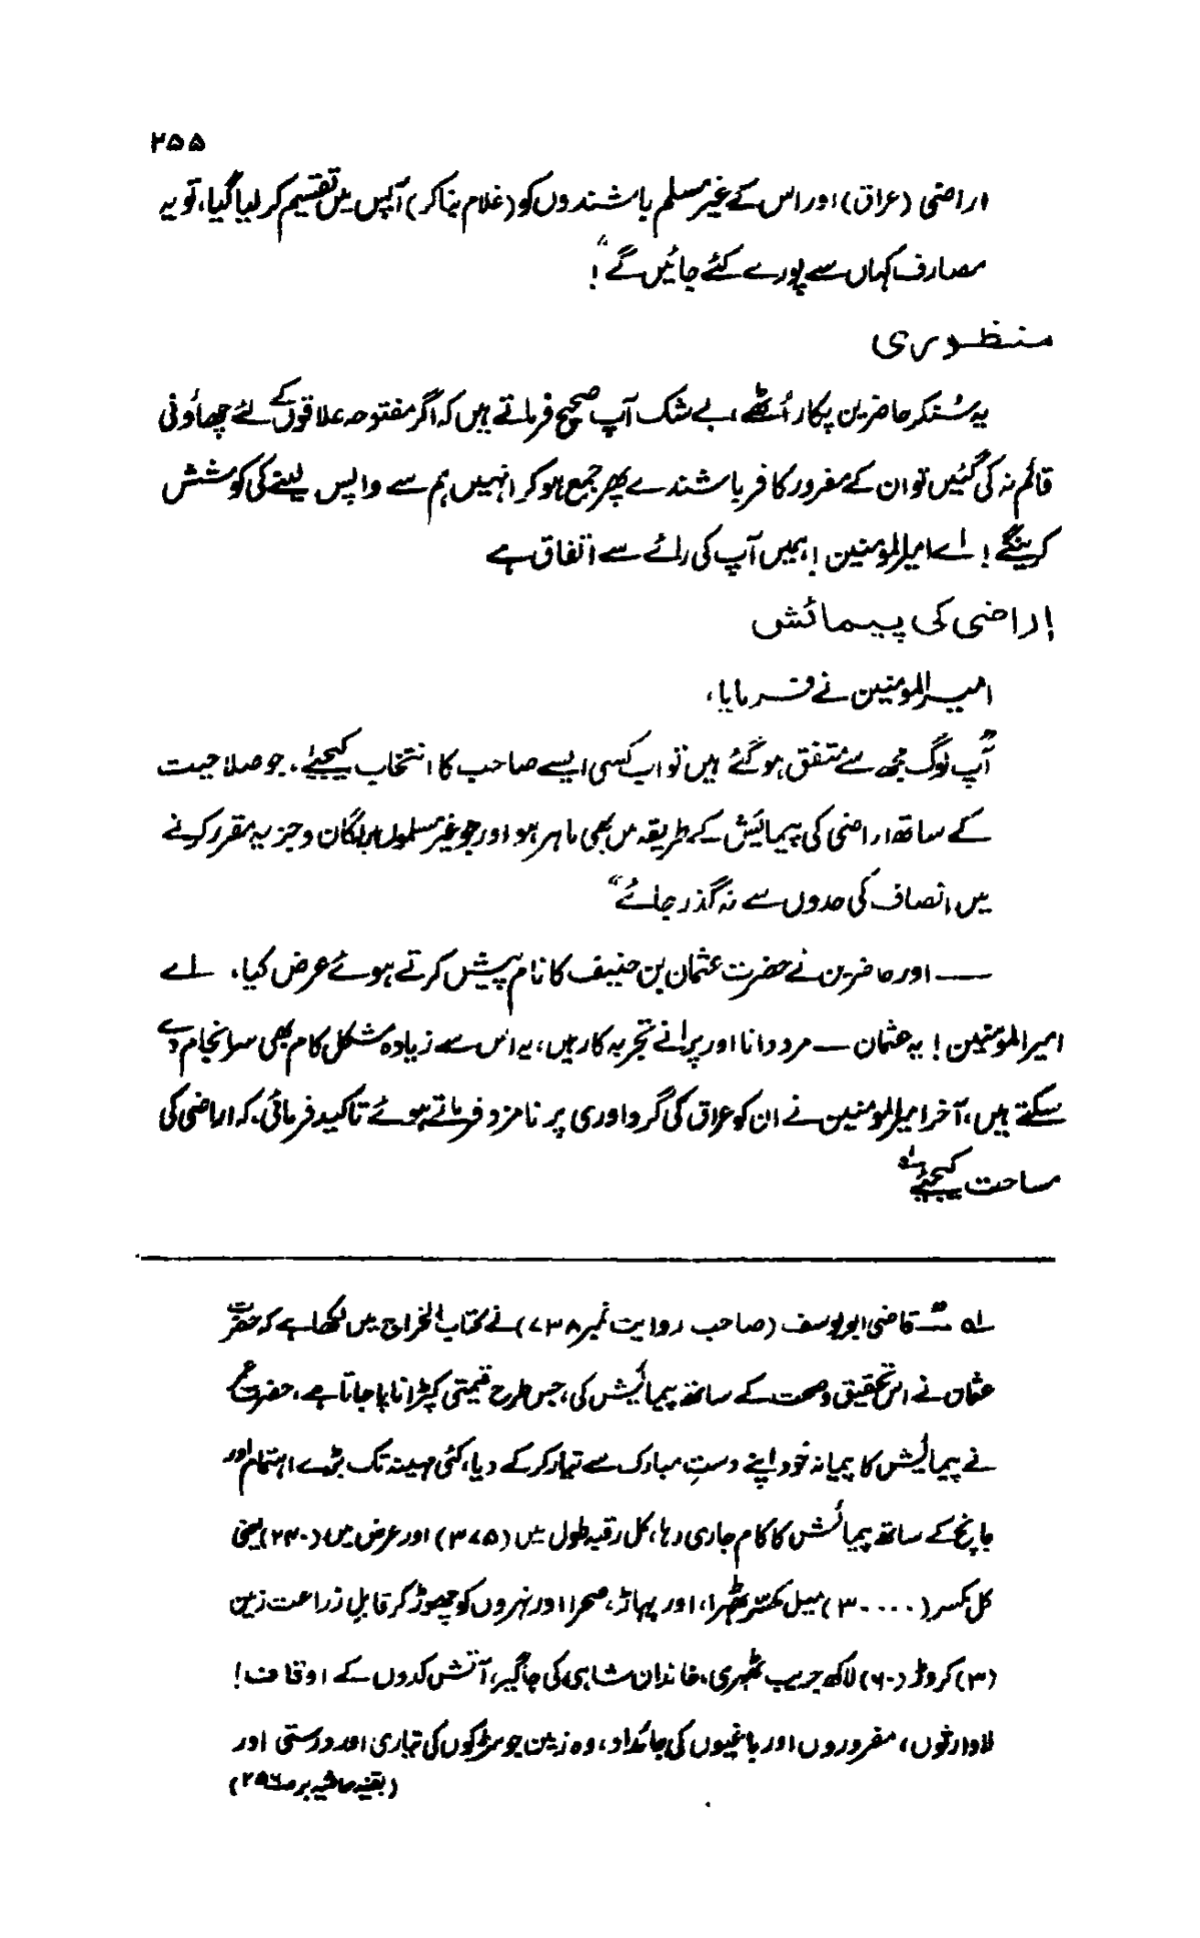 ۲۵۵
اراضی (عراق) اور اس کے غیر مسلم باشندوں کو (غلام بنا کر) آپس میں تقسیم کر لیا گیا، تو یہ
مصارف کہاں سے پورے کئے جائیں گے"!
منظوری
یہ سُنکر حاضرین پکار اُٹھے، بے شک آپ صحیح فرماتے ہیں کہ اگر مفتوحہ علاقوں کے لئے چھاؤنی
قائم نہ کی گئیں تو ان کے مفرور کافر باشندے پھر جمع ہو کر انہیں ہم سے واپس لینے کی کوشش
کرینگے! اے امیرالمؤمنین! ہمیں آپ کی رائے سے اتفاق ہے
اراضی کی پیمائش
امیرالمومنین نے فرمایا،
"آپ لوگ مجھ سے متفق ہو گئے ہیں تو اب کسی ایسے صاحب کا انتخاب کیجئے، جو صلاحیت
کے ساتھ اراضی کی پیمائش کے طریقہ میں بھی ماہر ہو اور جو غیر مسلموں پر لگان و جزیہ مقرر کرنے
میں انصاف کی حدوں سے نہ گذر جائے"
—— اور حاضرین نے حضرت عثمان بن حنیف کا نام پیش کرتے ہوئے عرض کیا، اے
امیر المؤمنین! یہ عثمان — مرد دانا اور پرانے تجربہ کار ہیں، یہ اس سے زیادہ مشکل کام بھی سرانجام دے
سکتے ہیں، آخر امیرالمومنین نے ان کو عراق کی گرداوری پر نامزد فرماتے ہوئے تاکید فرمائی، کہ اراضی کی
مساحت کیجئے ؎۱
؎۱ قاضی ابو یوسف (صاحب روایت نمبر ۷۳۸) نے کتاب الخراج میں لکھا ہے کہ حضرت
عثمان نے اس تحقیق و صحت کے ساتھ پیمائش کی، جس طرح قیمتی کپڑا ناپا جاتا ہے، حضرت عمر
نے پیمائش کا پیمانہ خود اپنے دستِ مبارک سے تیار کر کے دیا، کئی مہینہ تک بڑے اہتمام اور
جانچ کے ساتھ پیمائش کا کام جاری رہا، کل رقبہ طول میں (۳۷۵) اور عرض میں (۲۴۰) یعنی
کل مکسر (۳۰۰۰۰) میل مکسّر ٹھہرا، اور پہاڑ، صحرا اور نہروں کو چھوڑ کر قابلِ زراعت زمین
(۳) کروڑ (۶۰) لاکھ جریب ٹھہری، خاندان شاہی کی جاگیر، آتش کدوں کے اوقاف!
لاوارثوں، مفروروں اور باغیوں کی جائداد، وہ زمین جو سڑکوں کی تیاری اور درستی اور
(بقیہ حاشیہ بر صـ ۲۵۶)